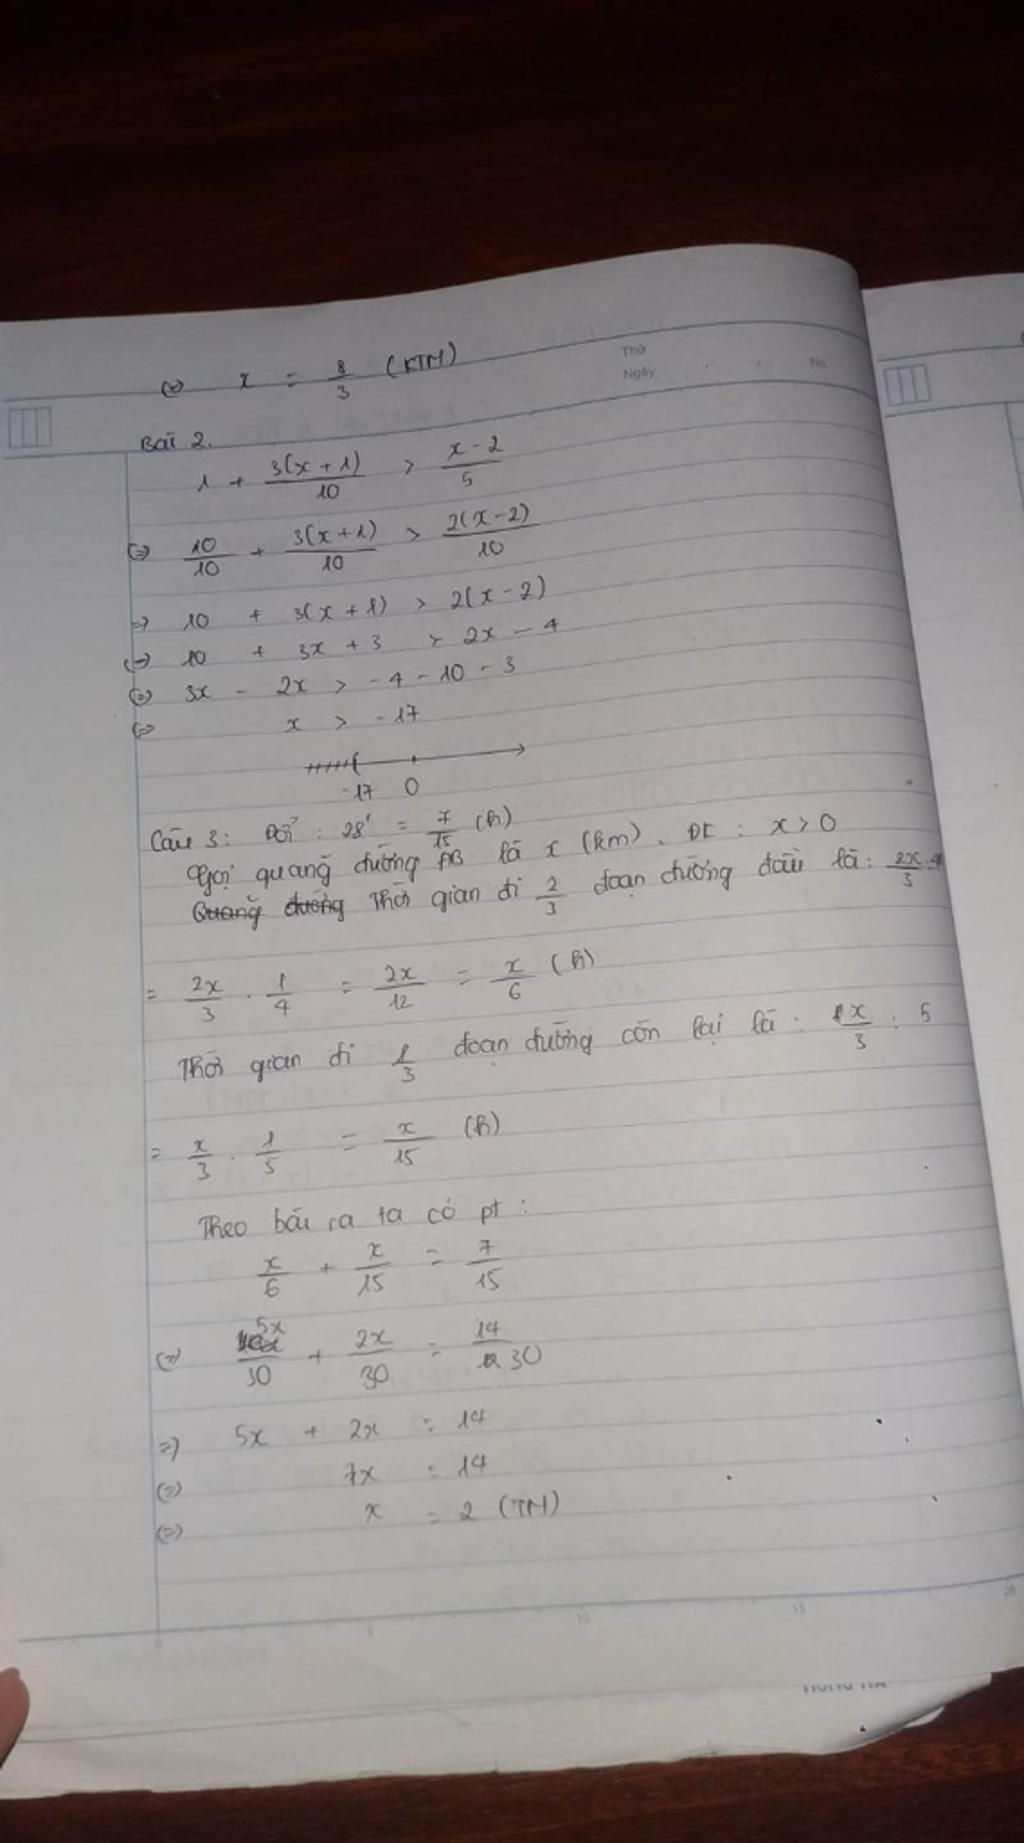 Thứ
Ngày
No
(=) x = 8/3 (KTM)
Bài 2.
1 + 3(x + 1)/10 > x - 2/5
(=) 10/10 + 3(x+1)/10 > 2(x-2)/10
=) 10 + 3(x + 1) > 2(x-2)
(=) 10 + 3x + 3 > 2x - 4
(=) 3x - 2x > -4 - 10 - 3
(=) x > -17
-17 0
Câu 3: Đổi : 28' = 7/15 (h)
Gọi quãng đường AB là x (km). ĐK : x > 0
Quãng đường Thời gian đi 2/3 đoạn đường đầu là: 2x/3 : 4
= 2x/3 . 1/4 = 2x/12 = x/6 (h)
Thời gian đi 1/3 đoạn đường còn lại là : x/3 : 5
= x/3 . 1/5 = x/15 (h)
Theo bài ra ta có pt :
x/6 + x/15 = 7/15
(=) 5x/30 + 2x/30 = 14/30
=) 5x + 2x = 14
(=) 7x = 14
(=) x = 2 (TM)
5 10 15 20